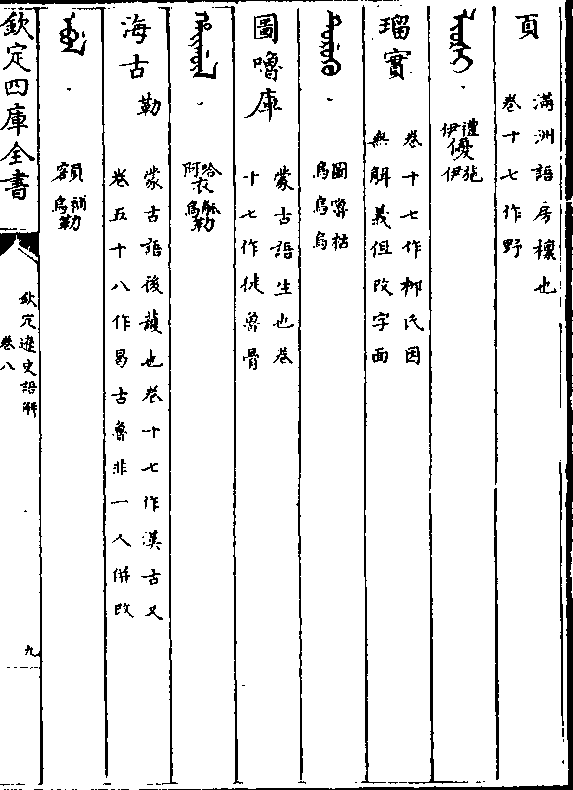 頁
滿洲語房檁也
卷十七作野
禮伊優施伊
瑠實
卷十七作柳氏因
無解義但改字面
圖烏嚕烏枯烏
圖嚕庫
蒙古語生也卷
十七作徒魯骨
哈阿衣觚烏勒
海古勒
蒙古語後護也卷十七作漢古又
卷五十八作曷古魯非一人併改
額補烏勒
欽定四庫全書
欽定遼史語解
卷八
九